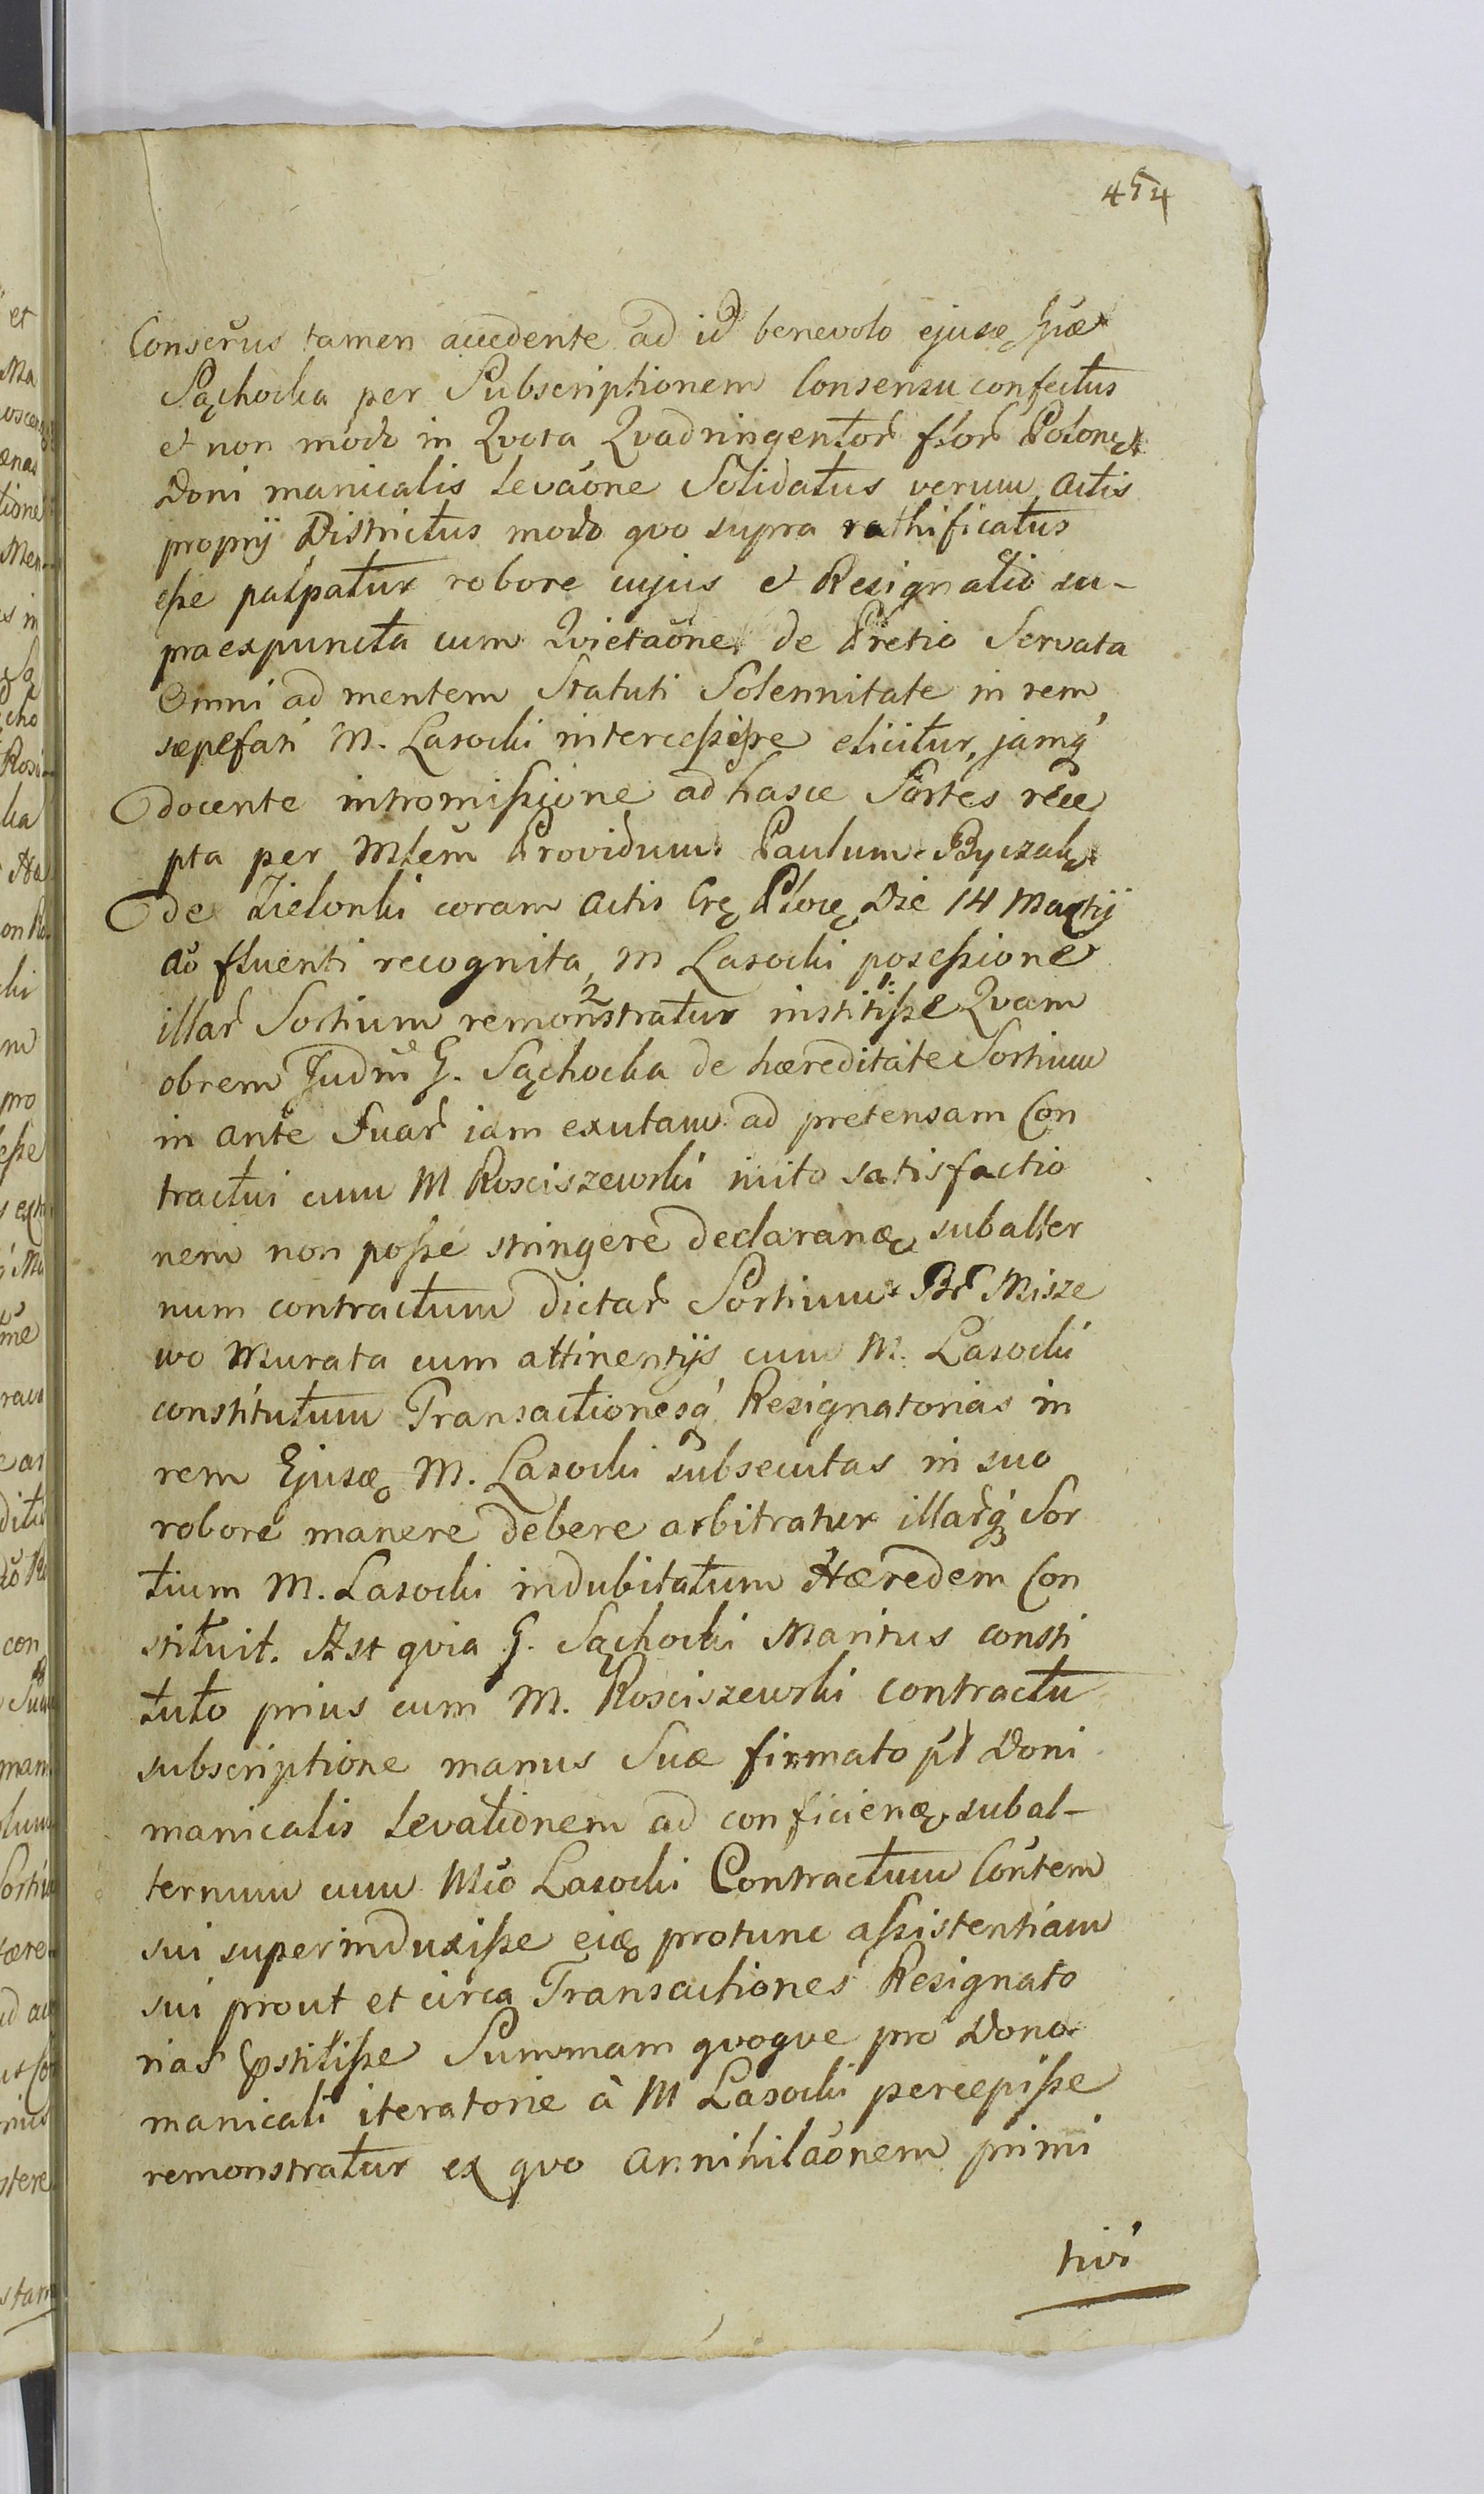 454
Conserus tamen accedente ad id benevolo ejusdę Gsæ
Sąchocka per Subscriptionem Consensu confectus
et non modo in Qvota Qvadringentor flor Polonę
Doni manicalis levaõne Solidatus verum Actis
proprij Districtus modo qvo supra rathificatus
eſse palpatur robore cujus et Resignatio su-
praexpuncta cum Qvietaõne de Pretio Servata
Omni ad mentem Statuti Solennitate in rem
sæpefati M. Lasocki interceſsiſse elicitur, jamq
docente intromiſsione ad hasce Sortes rece
pta per Mlem Providum Paulum Byczek
de Zielonki coram Actis Crę Plocę Die 14 Martij
aõ fluenti recognita, M Lasocki poseſsione
illar Sortium remonstratur institiſse Qvam
obrem Judm G. Sąchocka de hæreditate Sortium
in ante Suar iam exutam ad pretensam Con
tractui cum M Rosciszewski inito satisfactio
nem non poſse stringere declarandę, subalter
num contractum dictar Sortium Br Misze
wo Murata cum attinentijs cum M. Lasocki
constitutum Transactionesq Resignatorias in
rem Ejusdę M. Lasocki subsecutas in suo
robore manere debere arbitratur illarq Sor
tium M. Lasocki indubitatum Hæredem Con
stituit. Ast qvia G. Sąchocki Maritus consti
tuto prius cum M. Rosciszewski contractu
subscriptione manus Suæ firmato pt Doni
manicalis levationem ad conficiendę subal-
ternum cum Mco Lasocki Contractum Contem
sui superinduxiſse eidę protunc aſsistentiam
sui prout et circa Transactiones Resignato
rias pstitiſse Summam qvoqve pro Dono
manicali iteratorie à M Lasocki percepiſse
remonstratur ex qvo annihilaõnem primi
tivi